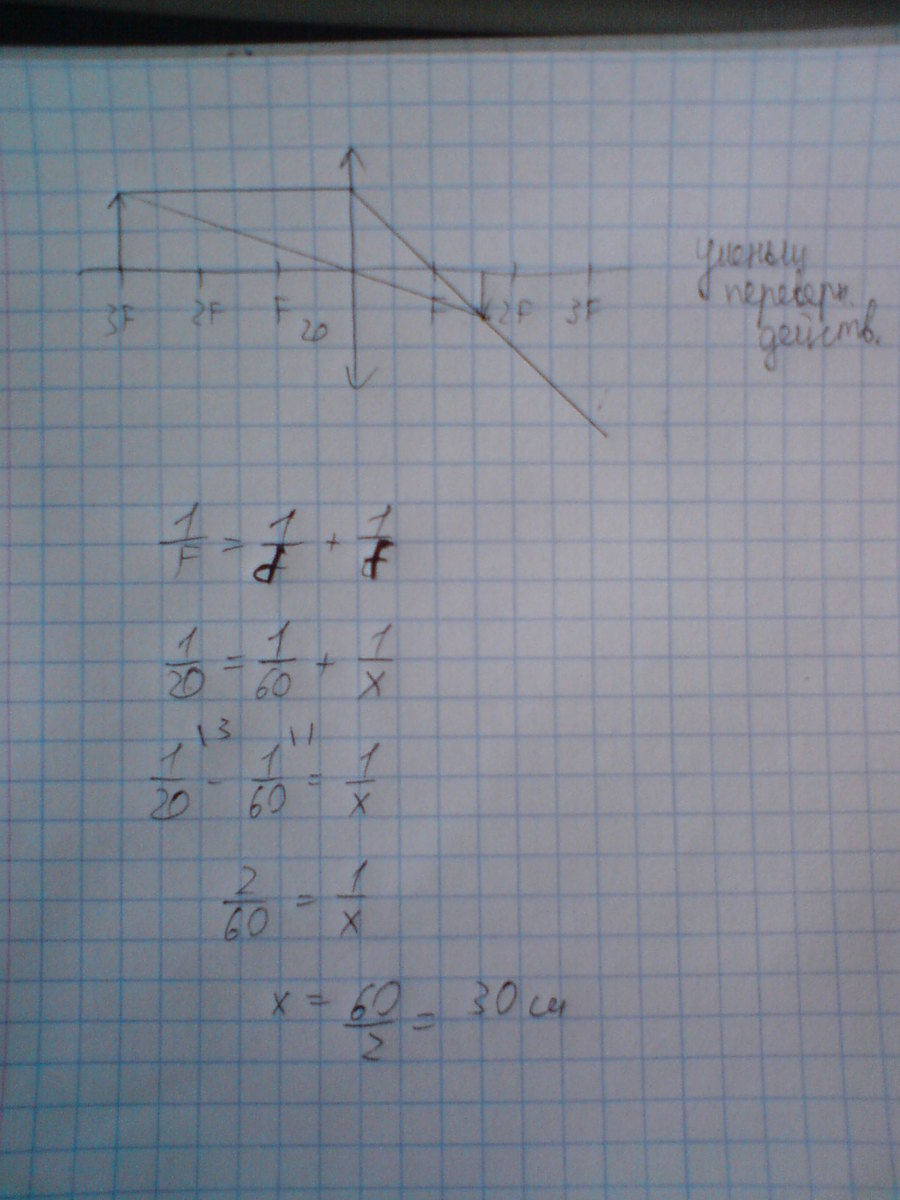 3F 2F F 20 F 2F 3F
уменьш
переверн.
действ.
1/F = 1/d + 1/f
1/20 = 1/60 + 1/x
1/20 \3 - 1/60 \1 = 1/x
2/60 = 1/x
x = 60/2 = 30 см